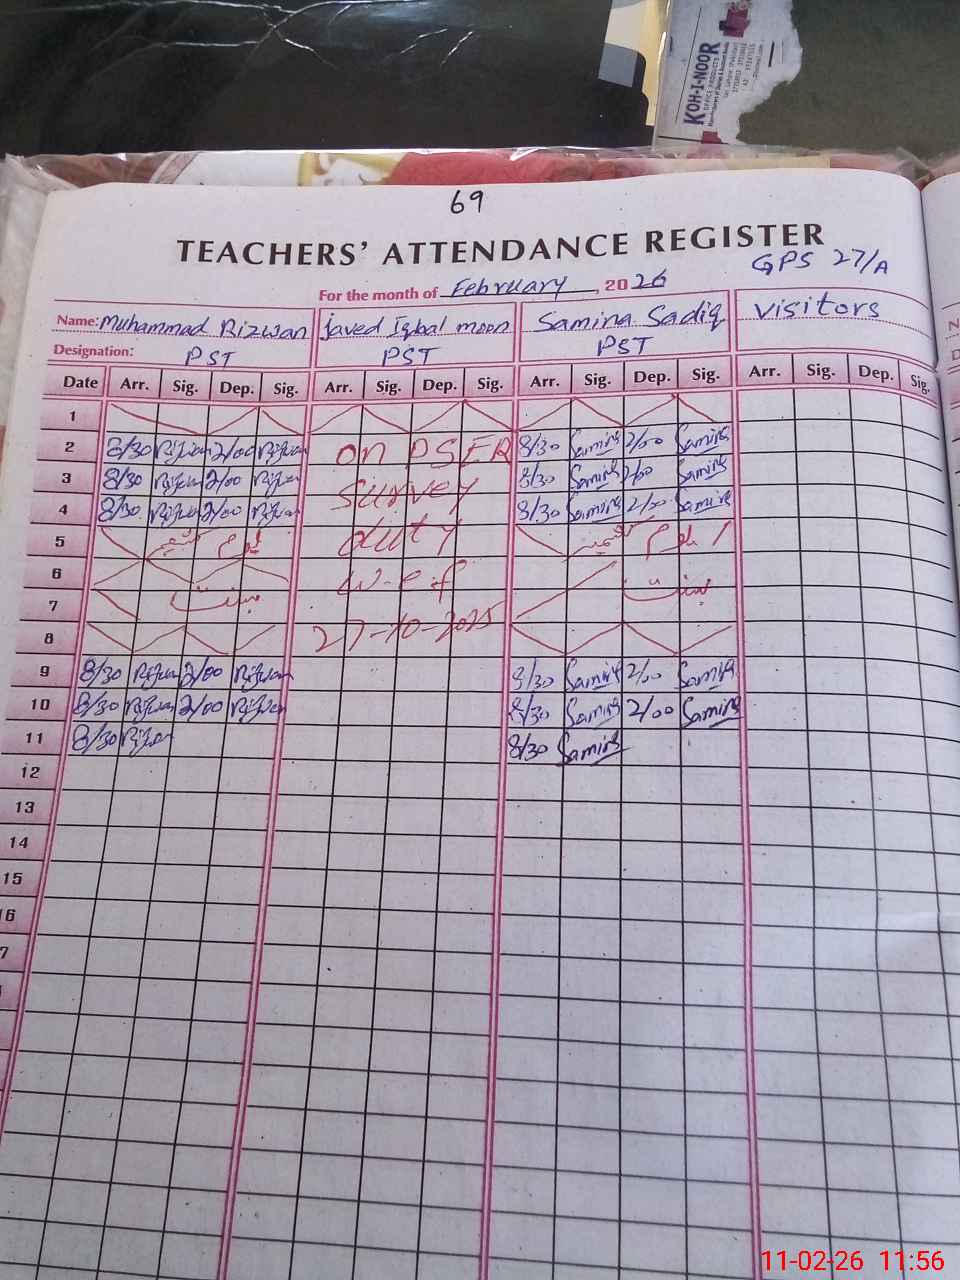 KOH-I-NOOR
OFFICE PRODUCTS
69
TEACHERS' ATTENDANCE REGISTER
GPS 27/A
For the month of February, 2026
Name: Muhammad Rizwan javed Iqbal moon Samina Sadiq visitors
Designation: PST PST PST
Date Arr. Sig. Dep. Sig. Arr. Sig. Dep. Sig. Arr. Sig. Dep. Sig. Arr. Sig. Dep. Sig.
1
2 8/30 Rizwan 2/00 Rizwan on PSER 8/30 Samina 2/00 Samina
3 8/30 Rizwan 2/00 Rizwan Survey 8/30 Samina 2/00 Samina
4 8/30 Rizwan 2/00 Rizwan duty 8/30 Samina 2/00 Samina
5 یوم کشمیر یوم کشمیر
6 w.e.f
7 بسنت بسنت
8 27-10-2025
9 8/30 Rizwan 2/00 Rizwan 8/30 Samina 2/00 Samina
10 8/30 Rizwan 2/00 Rizwan 8/30 Samina 2/00 Samina
11 8/30 Rizwan 8/30 Samina
12
13
14
15
16
7
11-02-26 11:56